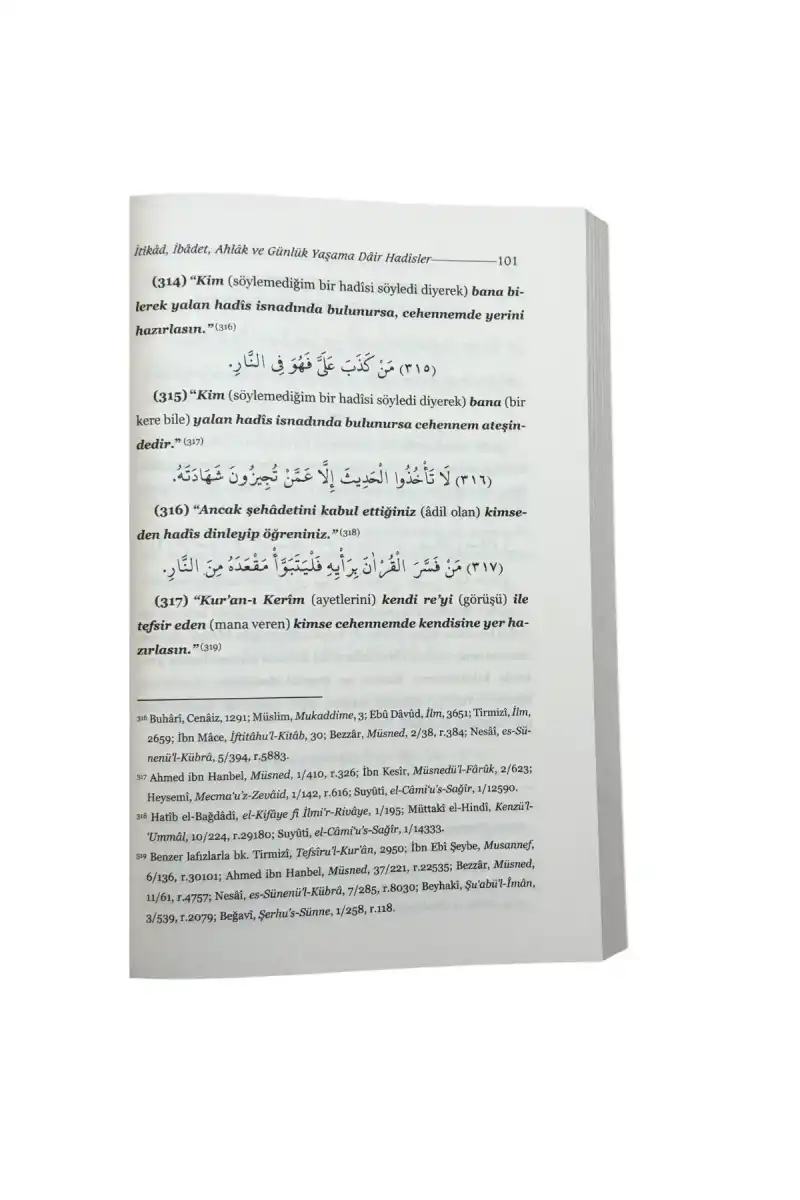 İtikâd, İbâdet, Ahlâk ve Günlük Yaşama Dâir Hadisler 101
(314) “Kim (söylemediğim bir hadîsi söyledi diyerek) bana bi-
lerek yalan hadîs isnadında bulunursa, cehennemde yerini
hazırlasın.”(316)
(٣١٥) مَنْ كَذَبَ عَلَيَّ فَهُوَ فِي النَّارِ.
(315) “Kim (söylemediğim bir hadîsi söyledi diyerek) bana (bir
kere bile) yalan hadîs isnadında bulunursa cehennem ateşin-
dedir.” (317)
(٣١٦) لَا تَأْخُذُوا الْحَدِيثَ إِلَّا عَمَّنْ تُجِيزُونَ شَهَادَتَهُ.
(316) “Ancak şehâdetini kabul ettiğiniz (âdil olan) kimse-
den hadîs dinleyip öğreniniz.”(318)
(٣١٧) مَنْ فَسَّرَ الْقُرْاٰنَ بِرَأْيِهِ فَلْيَتَبَوَّأْ مَقْعَدَهُ مِنَ النَّارِ.
(317) “Kur'an-ı Kerîm (ayetlerini) kendi re'yi (görüşü) ile
tefsir eden (mana veren) kimse cehennemde kendisine yer ha-
zırlasın.”(319)
316 Buhârî, Cenâiz, 1291; Müslim, Mukaddime, 3; Ebû Dâvûd, İlm, 3651; Tirmizî, İlm,
2659; İbn Mâce, İftitâhu'l-Kitâb, 30; Bezzâr, Müsned, 2/38, r.384; Nesâî, es-Sü-
nenü'l-Kübrâ, 5/394, r.5883.
317 Ahmed ibn Hanbel, Müsned, 1/410, r.326; İbn Kesîr, Müsnedü'l-Fârûk, 2/623;
Heysemî, Mecma'u'z-Zevâid, 1/142, r.616; Suyûtî, el-Câmi'u's-Sağîr, 1/12590.
318 Hatîb el-Bağdâdî, el-Kifâye fi İlmi'r-Rivâye, 1/195; Müttakî el-Hindî, Kenzü'l-
'Ummâl, 10/224, r.29180; Suyûtî, el-Câmi'u's-Sağîr, 1/14333.
319 Benzer lafızlarla bk. Tirmizî, Tefsîru'l-Kur'ân, 2950; İbn Ebî Şeybe, Musannef,
6/136, r.30101; Ahmed ibn Hanbel, Müsned, 37/221, r.22535; Bezzâr, Müsned,
11/61, r.4757; Nesâî, es-Sünenü'l-Kübrâ, 7/285, r.8030; Beyhakî, Şu'abü'l-Îmân,
3/539, r.2079; Beğavî, Şerhu's-Sünne, 1/258, r.118.